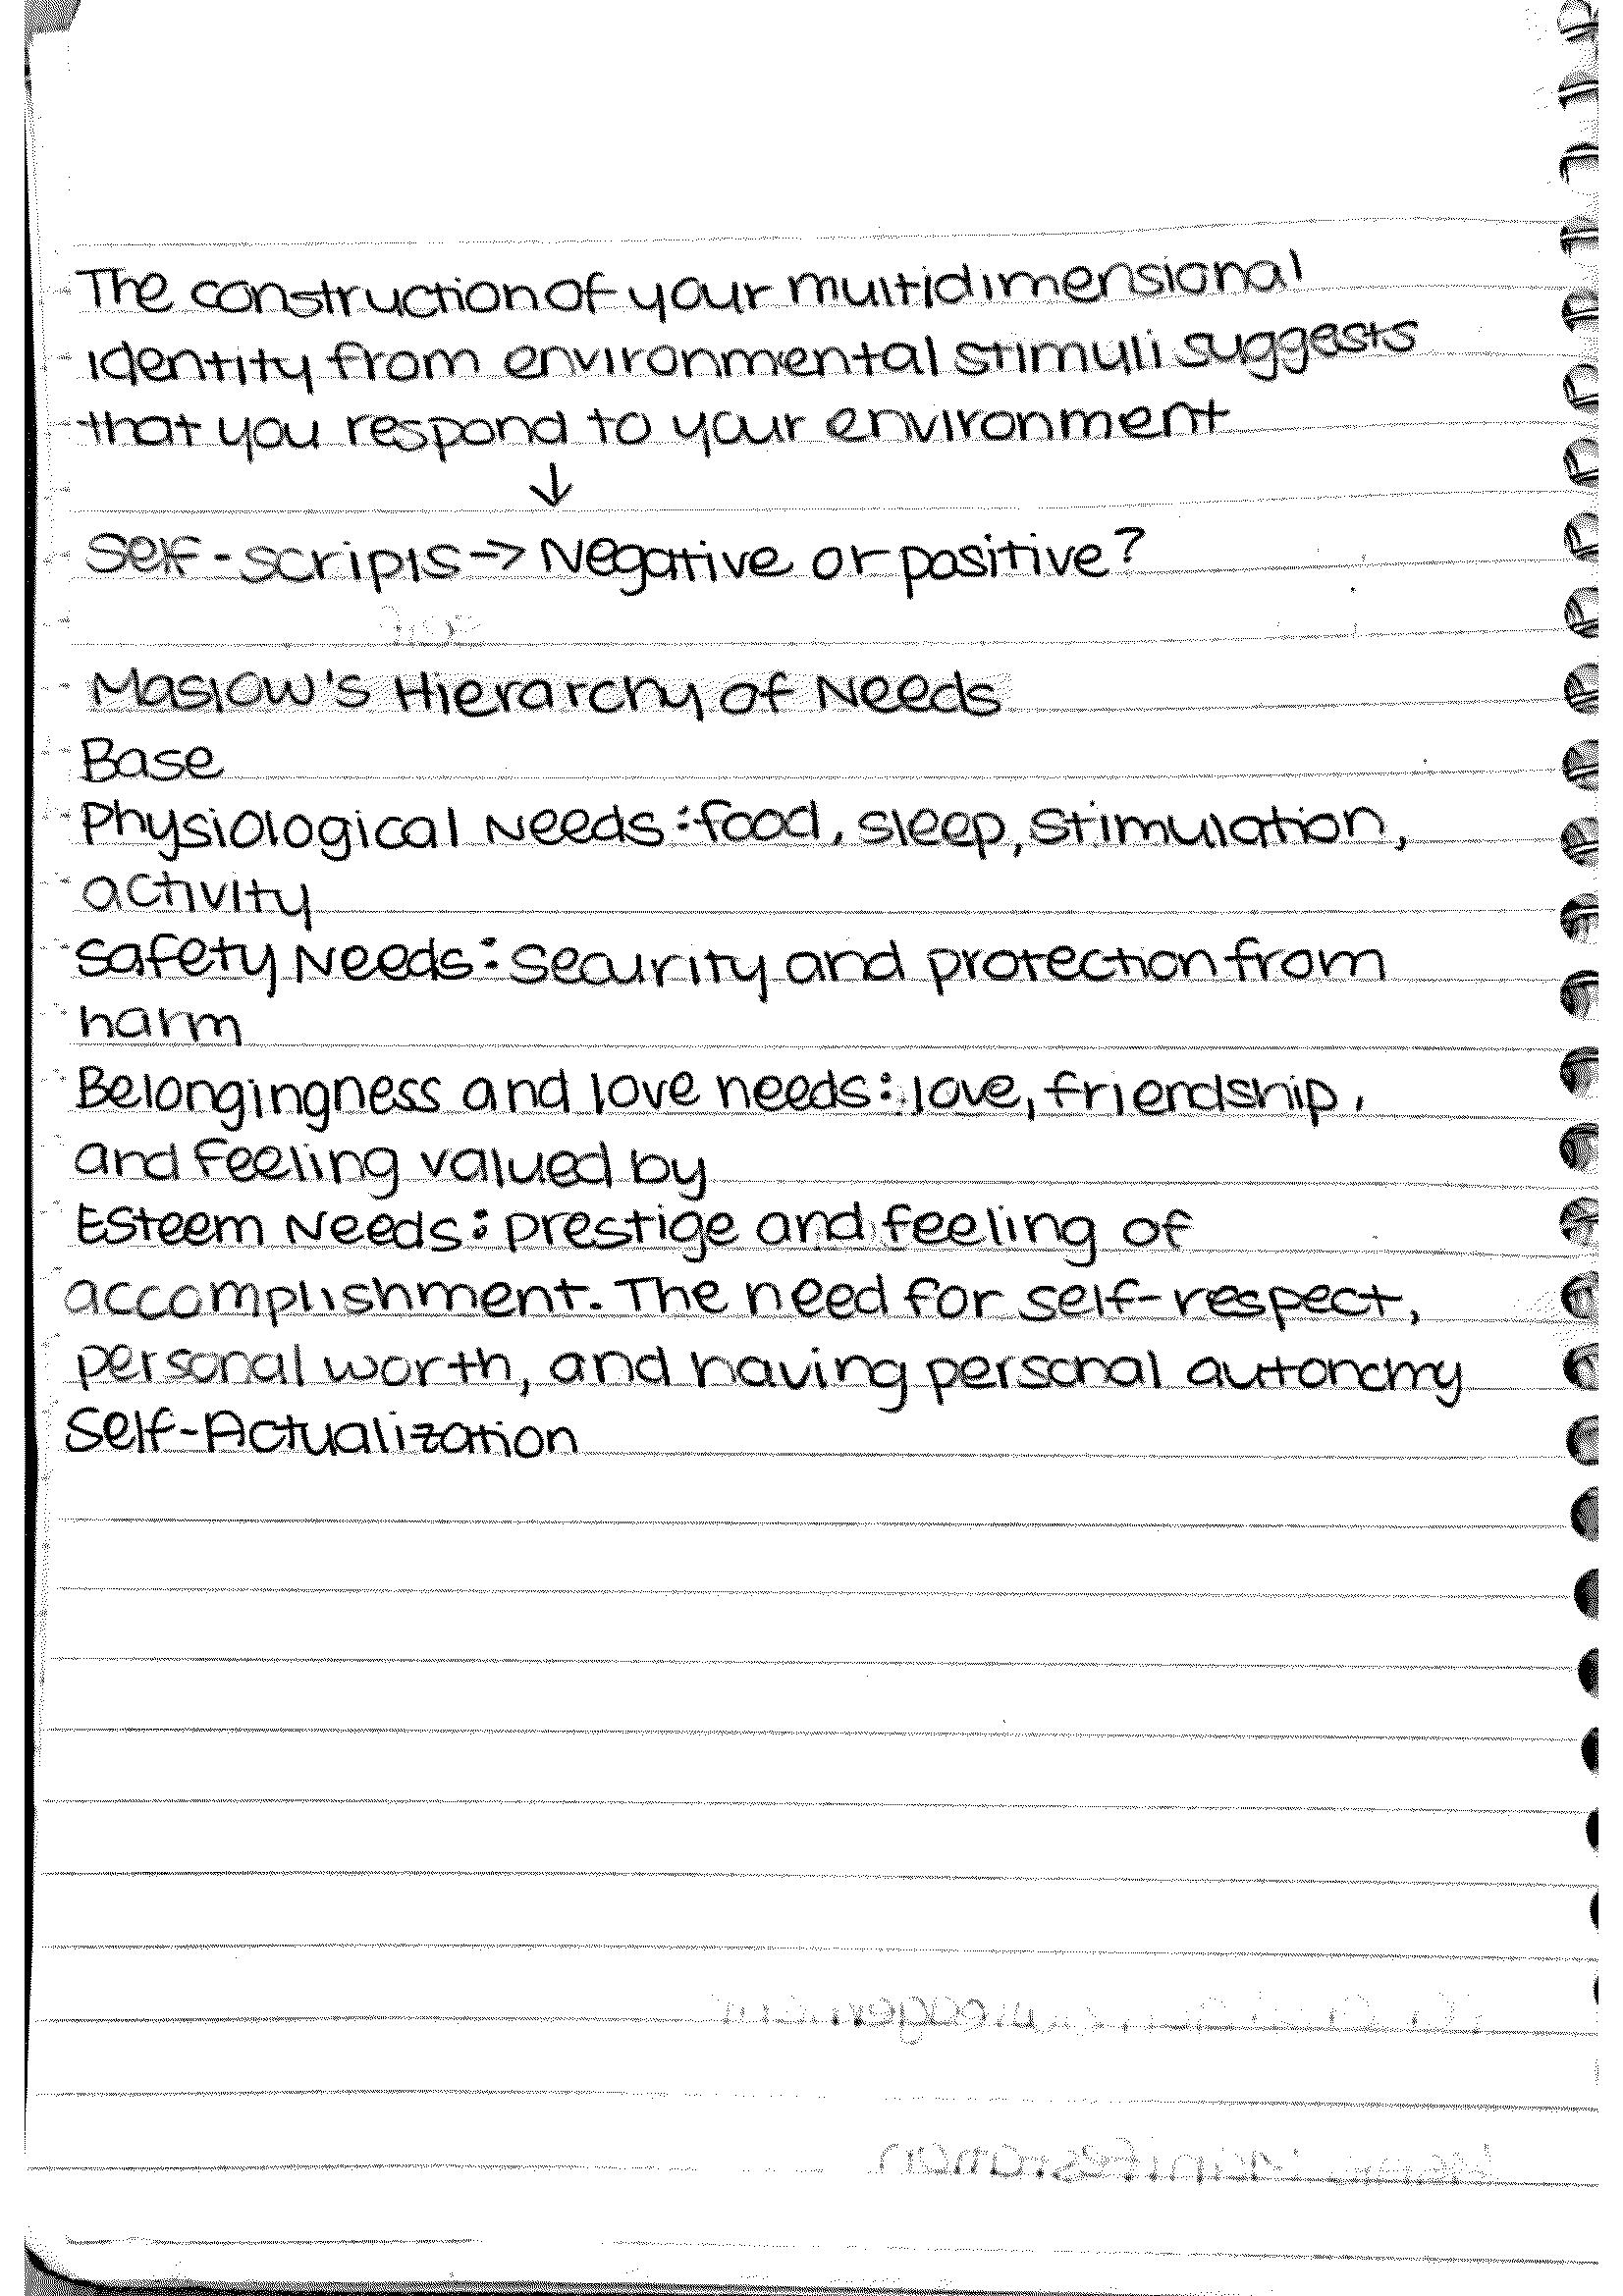 The construction of your multidimensional
identity from environmental stimuli suggests
that you respond to your environment
↓
Self-scripts -> Negative or positive?
Maslow's Hierarchy of Needs
Base
Physiological Needs: food, sleep, stimulation,
activity
Safety Needs: Security and protection from
harm
Belongingness and love needs: love, friendship,
and feeling valued by
Esteem Needs: prestige and feeling of
accomplishment. The need for self-respect,
personal worth, and having personal autonomy
Self-Actualization